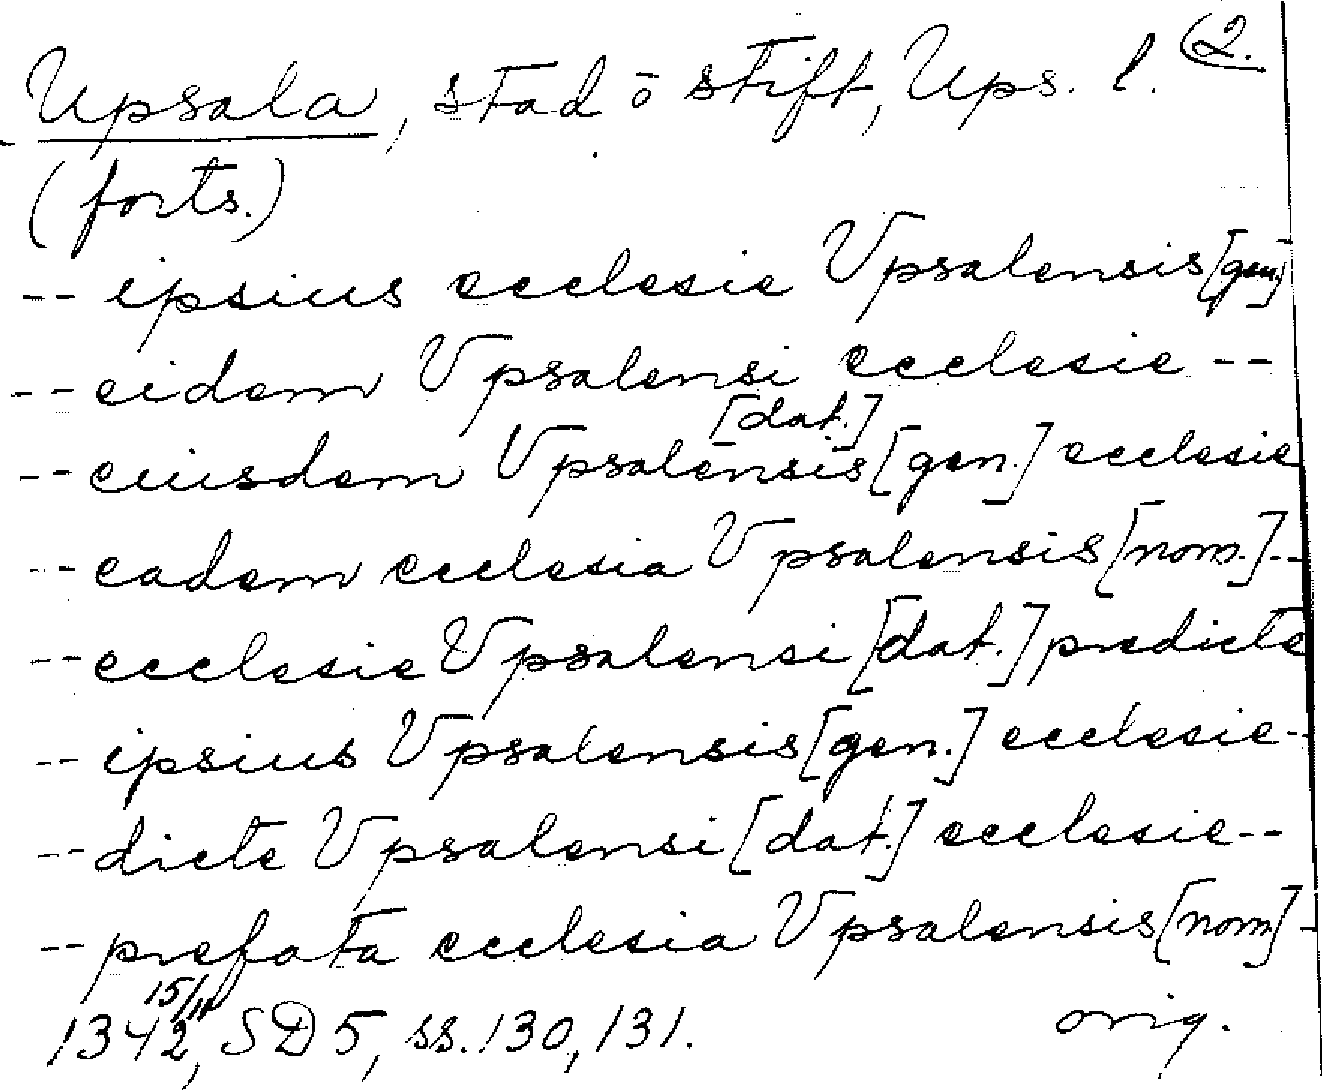 Upsala, stad o stift, Ups. l. (2.
(forts.)
-- ipsius ecclesie Vpsalensis [gen.]
-- eidem Vpsalensi ecclesie --
[dat.]
-- eiusdem Vpsalensis [gen.] ecclesie
-- eadem ecclesia Vpsalensis [nom.] --
-- ecclesie Vpsalensi [dat.] predicte
-- ipsius Vpsalensis [gen.] ecclesie --
-- dicte Vpsalensi [dat.] ecclesie --
-- prefata ecclesia Vpsalensis [nom] -
1342 15/11, SD 5, ss. 130, 131. orig.